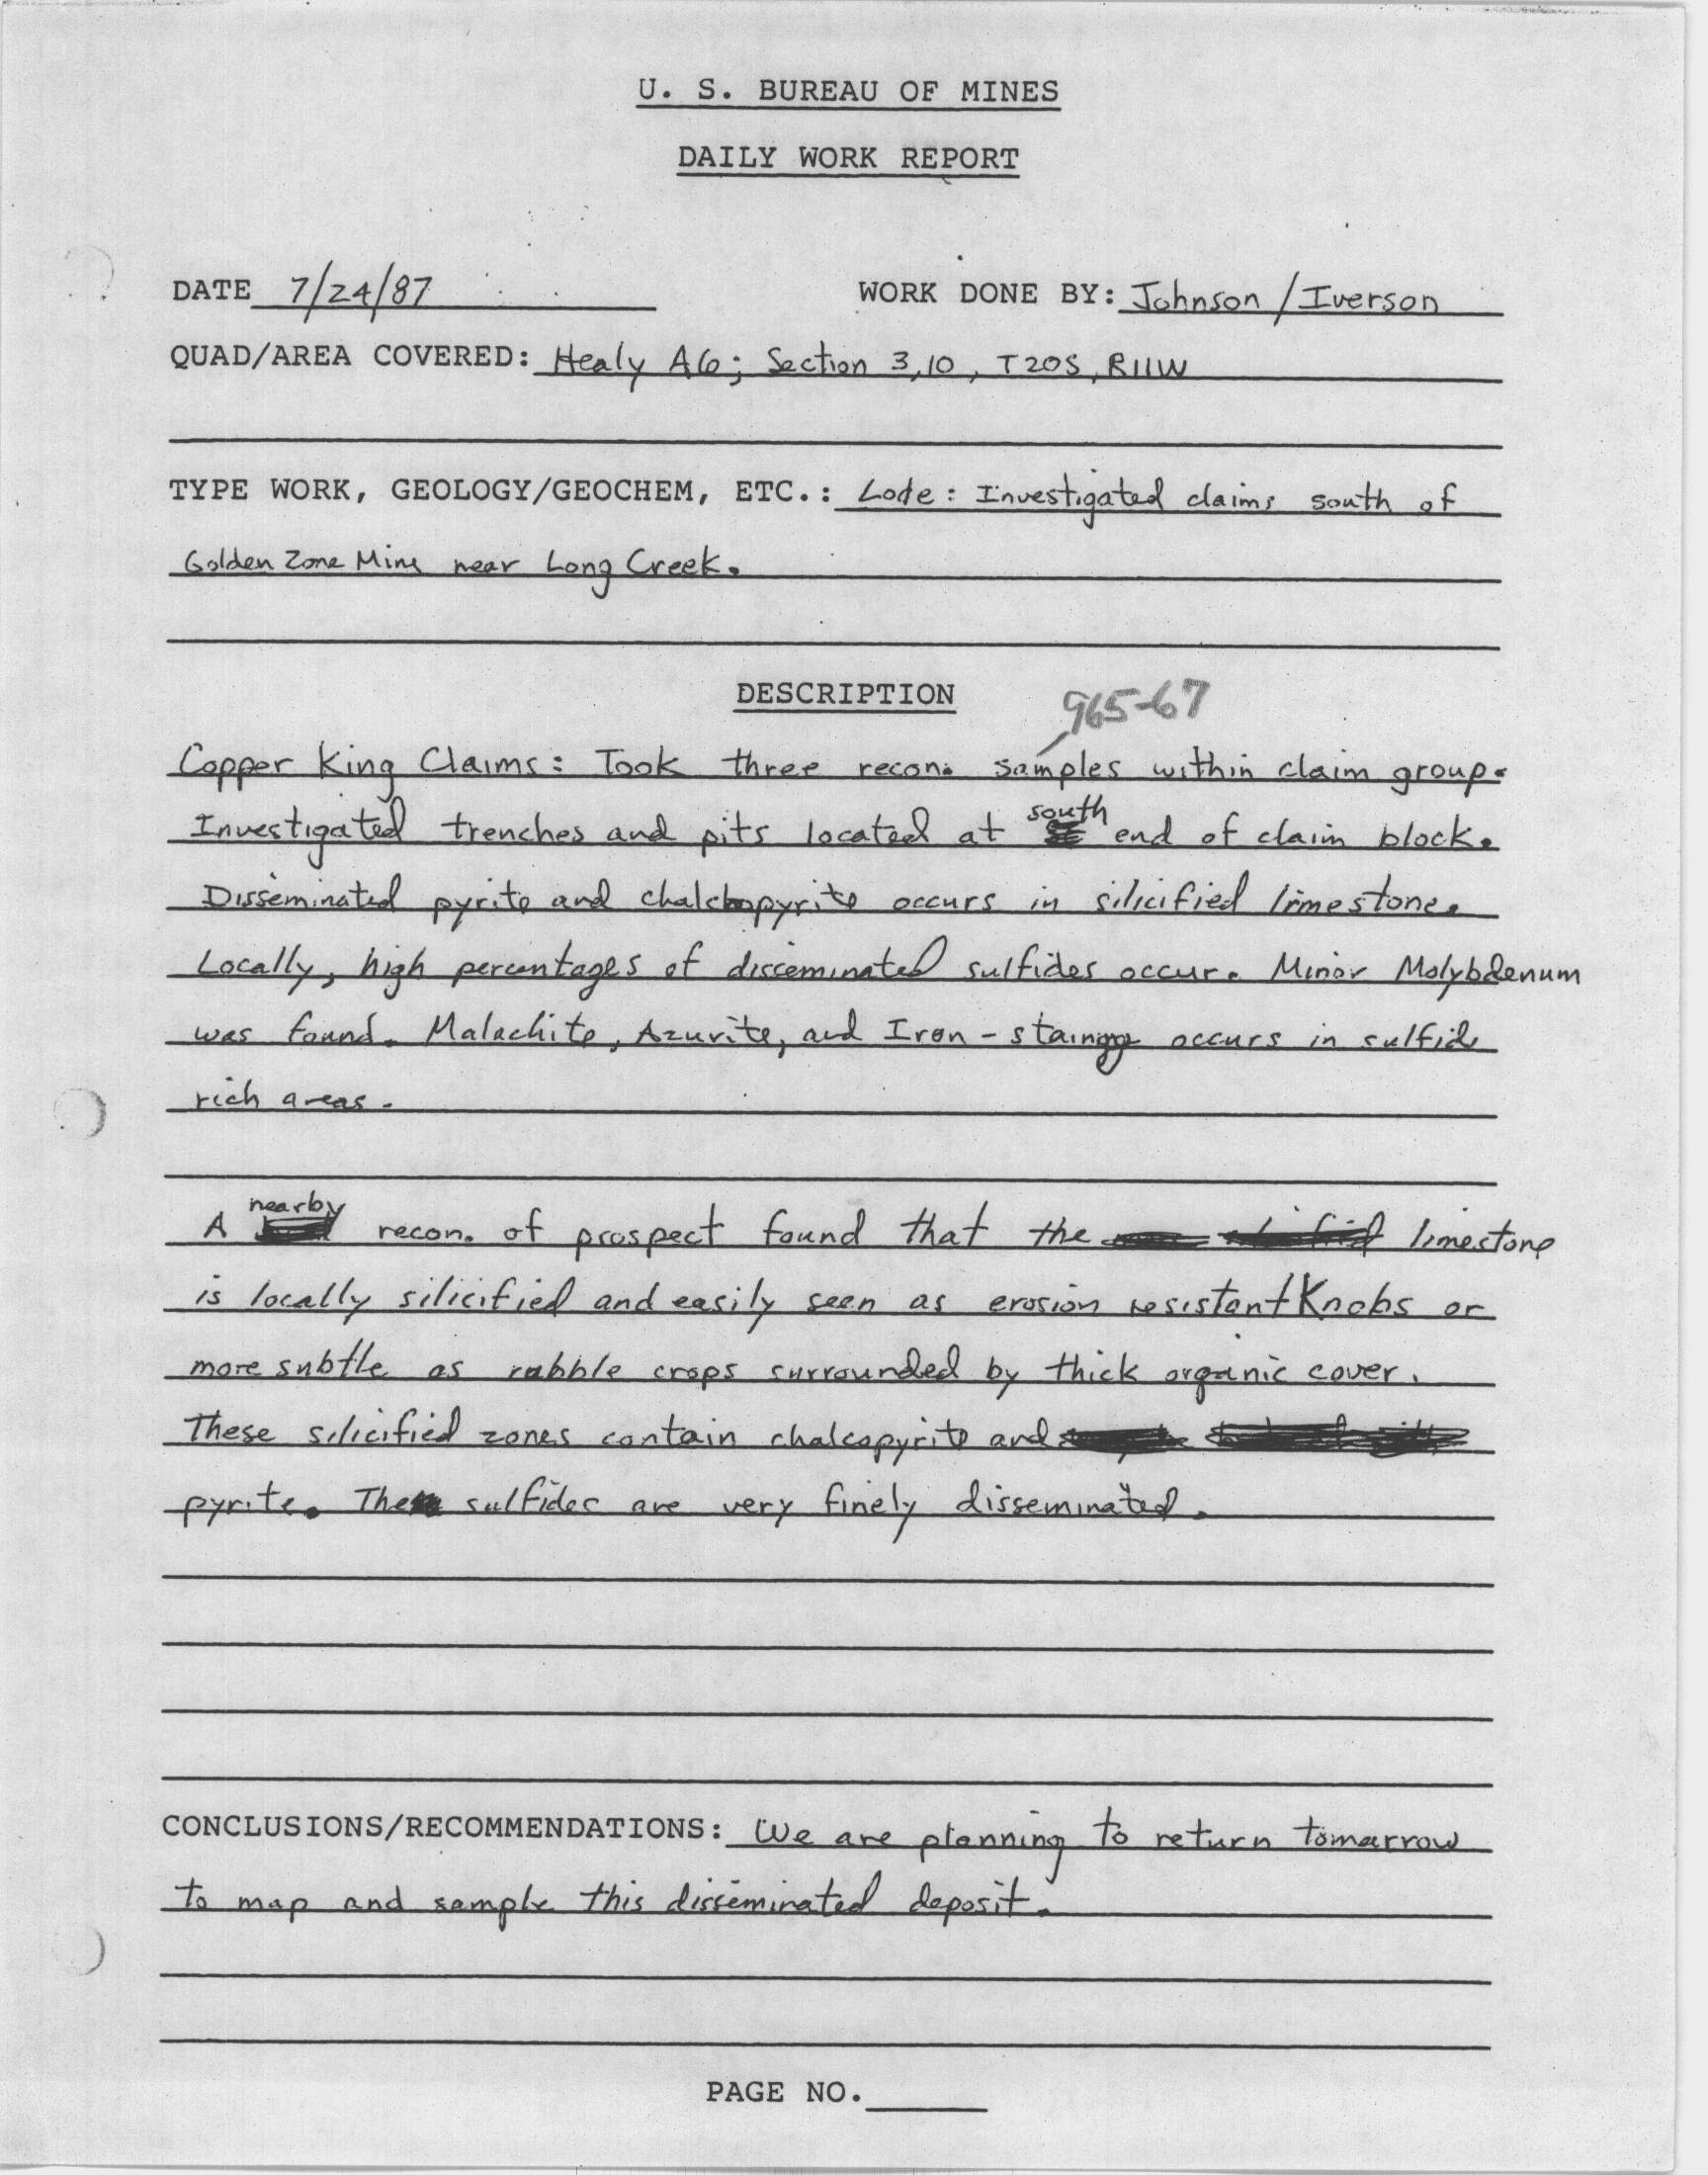 U. S. BUREAU OF MINES
DAILY WORK REPORT
DATE 7/24/87 WORK DONE BY: Johnson/Iverson
QUAD/AREA COVERED: Healy A6; Section 3,10, T20S, R11W
TYPE WORK, GEOLOGY/GEOCHEM, ETC.: Lode: Investigated claims south of
Golden Zone Mine near Long Creek.
DESCRIPTION
965-67
Copper King Claims: Took three recon. samples within claim group.
Investigated trenches and pits located at south end of claim block.
Disseminated pyrite and chalcopyrite occurs in silicified limestone.
Locally, high percentages of disseminated sulfides occur. Minor Molybdenum
was found. Malachite, Azurite, and Iron-staining occurs in sulfide
rich areas.
A nearby recon. of prospect found that the limestone
is locally silicified and easily seen as erosion resistant Knobs or
more subtle as rubble crops surrounded by thick organic cover.
These silicified zones contain chalcopyrite and
pyrite. The sulfides are very finely disseminated.
CONCLUSIONS/RECOMMENDATIONS: We are planning to return tomarrow
to map and sample this disseminated deposit.
PAGE NO.